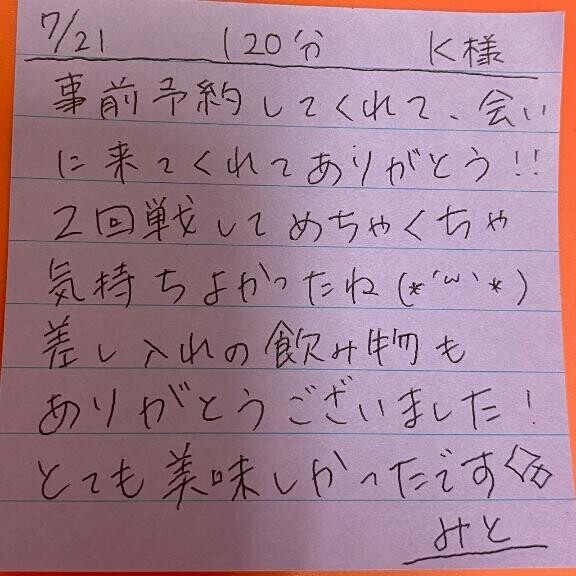 7/21 120分 K様
事前予約してくれて、会い
に来てくれてありがとう!!
2回戦してめちゃくちゃ
気持ちよかったね(*´ω`*)
差し入れの飲み物も
ありがとうございました!
とても美味しかったです
みと